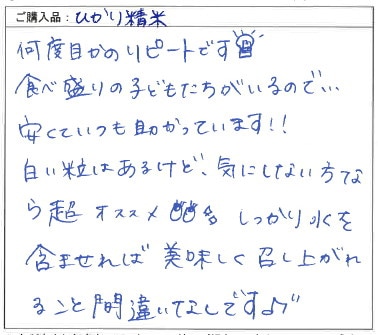 ご購入品：ひかり精米
何度目かのリピートです
食べ盛りの子どもたちがいるので…
安くていつも助かっています!!
白い粒はあるけど、気にしない方な
ら超オススメ しっかり水を
含ませれば美味しく召し上がれ
ること間違いなしですよ♪